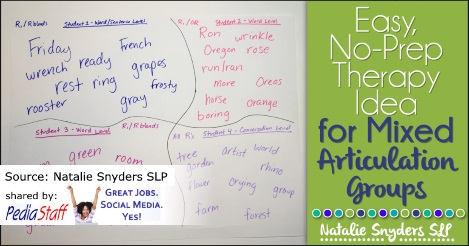 R, /R blends Student 1 - Word/Sentence Level
Friday French
wrench ready grapes
rest ring frosty
rooster gray
R, /OR Student 2 - Word Level
Ron wrinkle
Oregon rose
run/ran
more Oreos
horse orange
boring
Student 3 - Word Level R, /R blends
green room
All R's Student 4 - Conversation Level
tree artist world
garden rhino
flower crying group
farm forest
Source: Natalie Snyders SLP
shared by:
PediaStaff
GREAT JOBS.
SOCIAL MEDIA.
YES!
Easy,
No-Prep
Therapy
Idea
for Mixed
Articulation
Groups
Natalie Snyders SLP